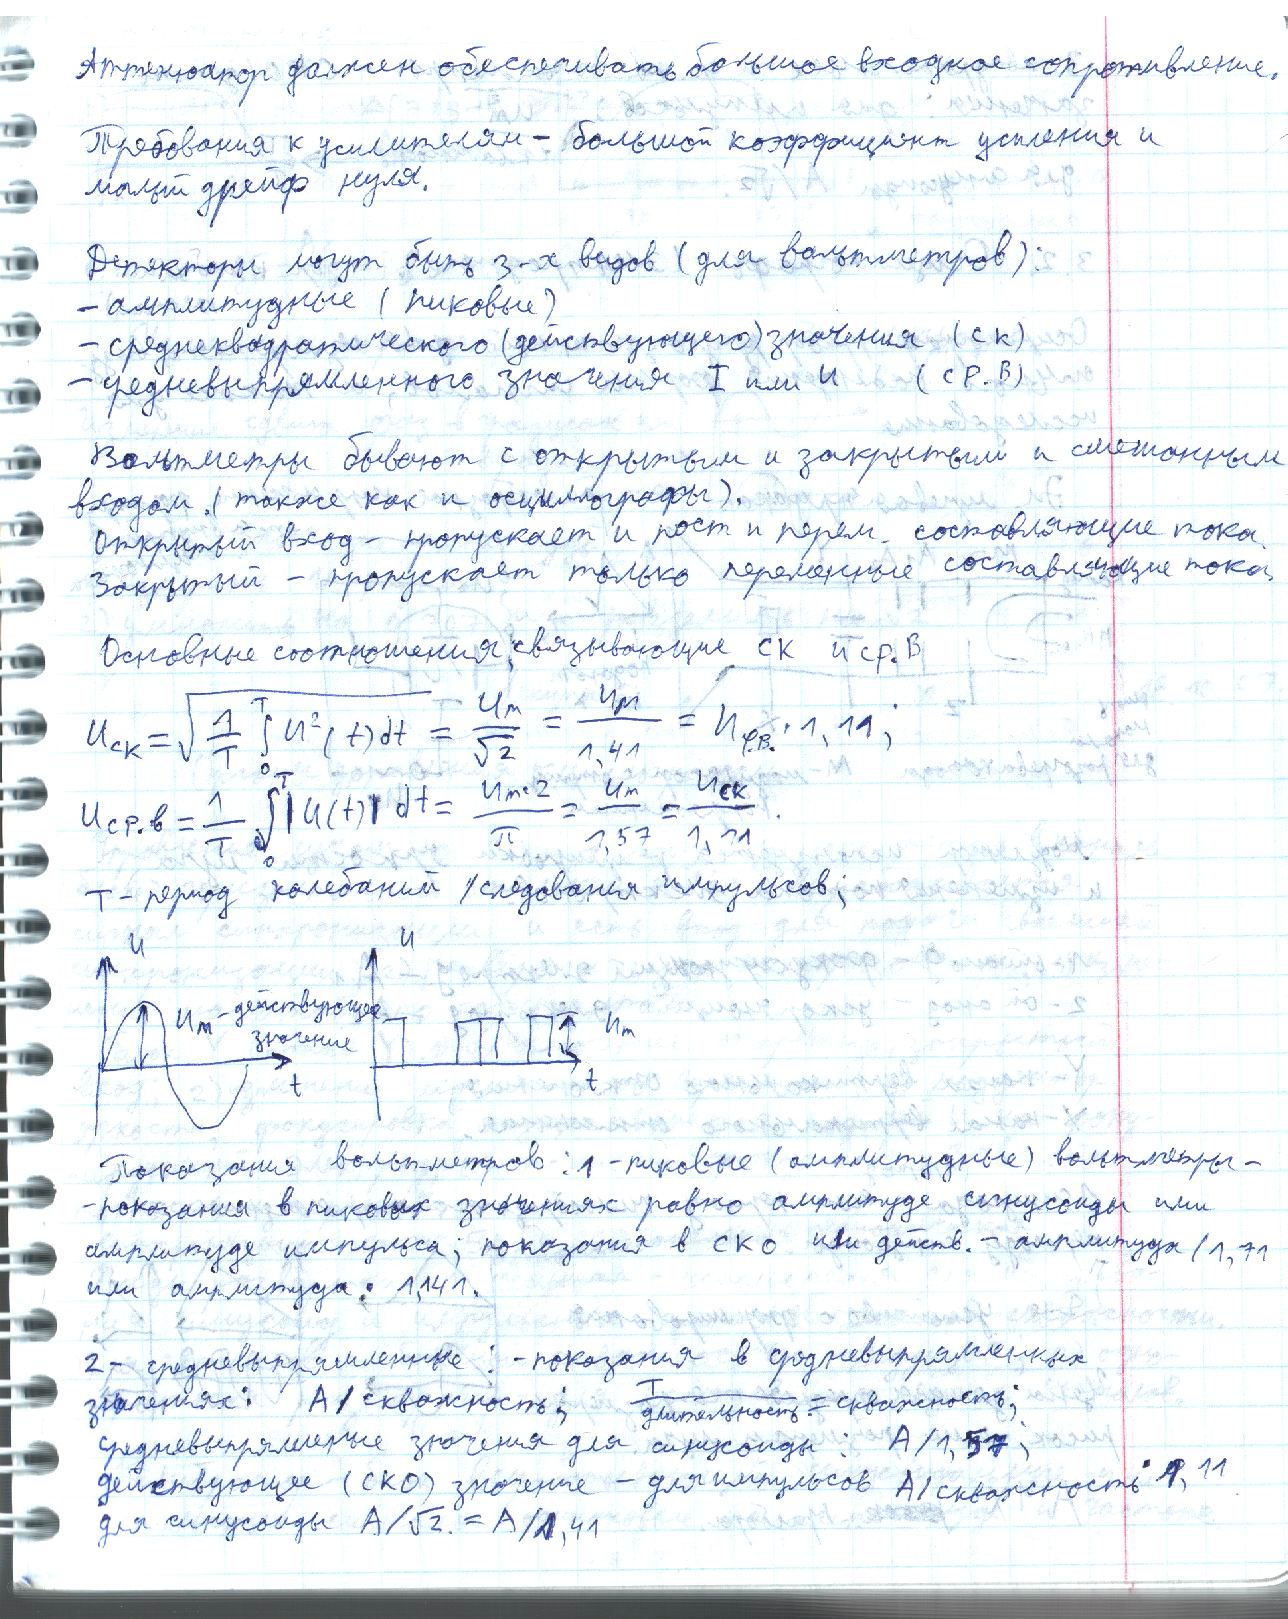 Аттенюатор должен обеспечивать большое входное сопротивление.
Требования к усилителям – большой коэффициент усиления и
малый дрейф нуля.
Детекторы могут быть 3-х видов (для вольтметров):
- амплитудные (пиковые)
- среднеквадратического (действующего) значения (СК)
- средневыпрямленного значения I или U (СР.В)
Вольтметры бывают с открытым и закрытым и смешанным
входом. (также как и осциллографы).
Открытый вход – пропускает и пост и перем. составляющие тока.
Закрытый – пропускает только переменные составляющие тока.
Основные соотношения, связывающие СК и СР.В
Uск = √(1/T ∫₀ᵀ U²(t)dt) = Um/√2 = Um/1,41 = Uср.в. · 1,11;
Uср.в = 1/T ∫₀ᵀ |U(t)| dt = Um·2/π = Um/1,57 = Uск/1,11.
T – период колебаний / следования импульсов;
U U
Um – действующее
значение
Um
t t
Показания вольтметров: 1 – пиковые (амплитудные) вольтметры –
- показания в пиковых значениях равно амплитуде синусоиды или
амплитуде импульса; показания в СКО или действ. – амплитуда / 1,71
или амплитуда · 1,141.
2 – средневыпрямленные: - показания в средневыпрямленных
значениях: A/скважность; T/длительность = скважность;
средневыпрямленые значения для синусоиды: A/1,57;
действующее (СКО) значение – для импульсов A/скважность · 1,11
для синусоиды A/√2 = A/1,41